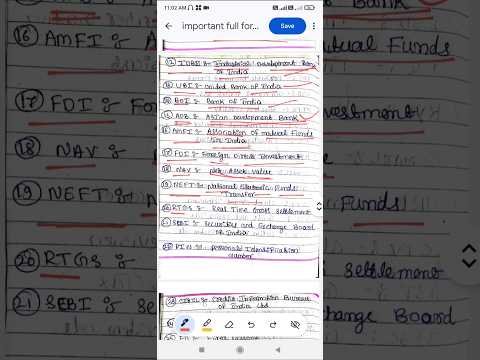 11:02 AM
important full for...
Save
IDBI :- Industrial Development Bank
of India
UBI :- United Bank of India
BOI :- Bank of India
ADB :- Asian Development Bank
AMFI :- Association of mutual Funds
in India
⑰ FDI :- Foreign Direct Investment
⑱ NAV :- Net Asset Value
⑲ NEFT :- National Electronic Funds
Transfer
⑳ RTGS :- Real Time Gross Settlement
㉑ SEBI :- Securities and Exchange Board
of India
PIN :- personal Identification
number
CIBIL :- Credit Information Bureau
of India Ltd
⑯ AMFI :-
mutual Funds
⑰ FDI :- For
vestment
⑱ NAV :-
⑲ NEFT :-
Funds
⑳ RTGS :-
settlement
㉑ SEBI :- Se
change Board